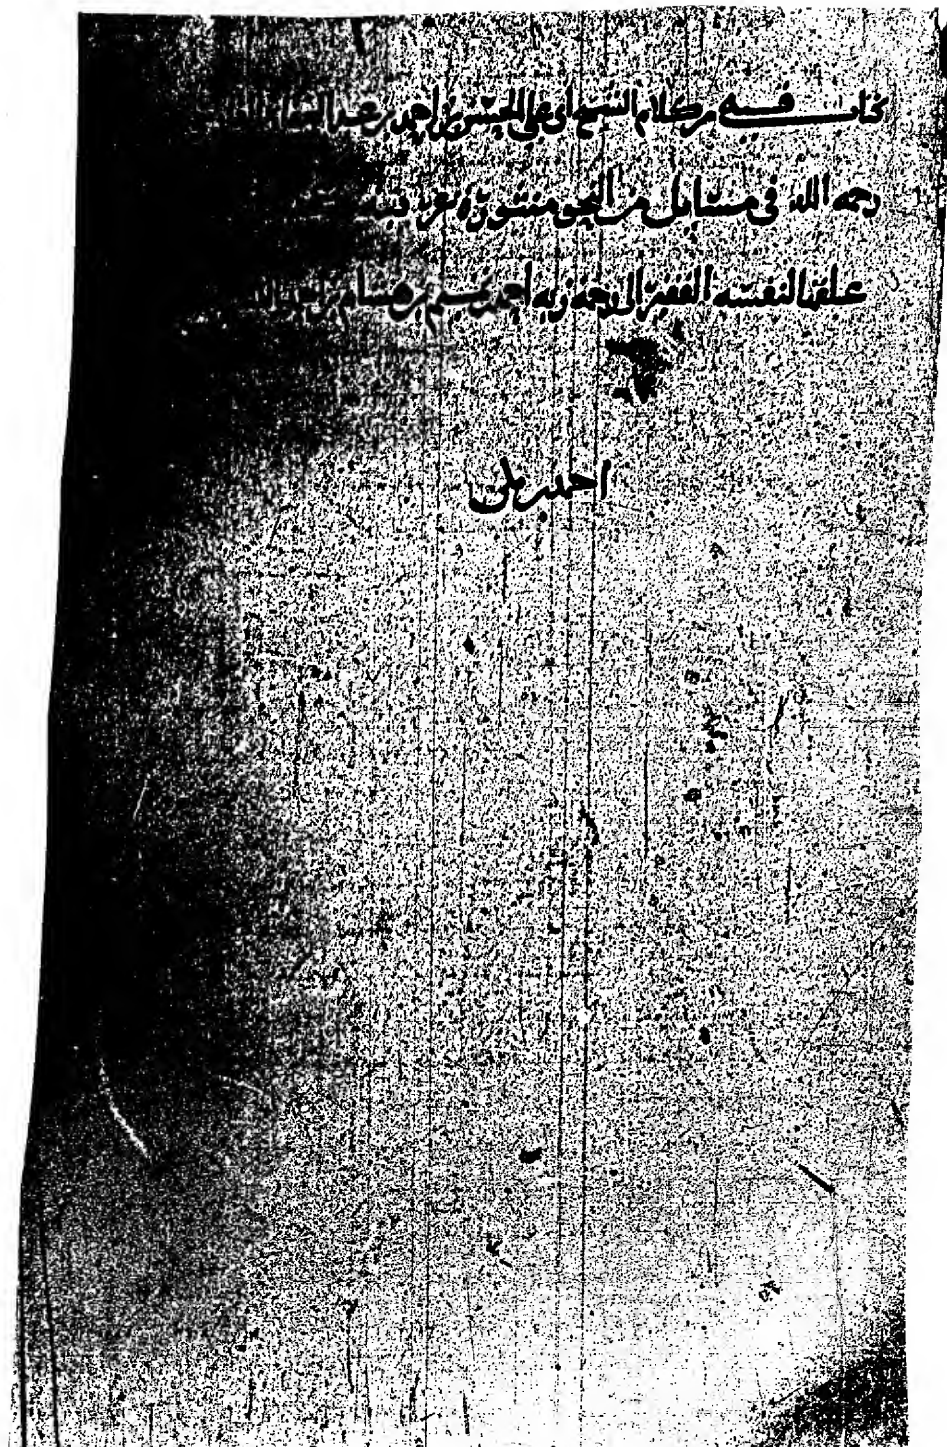 كتاب فيه من كلام الشيخ ابي علي الحسن بن احمد بن عبد الغفار
رحمه الله في مسائل من النحو منثورة
علقها لنفسه الفقير الى رحمة ربه احمد بن تميم بن هشام بن
احمد بن